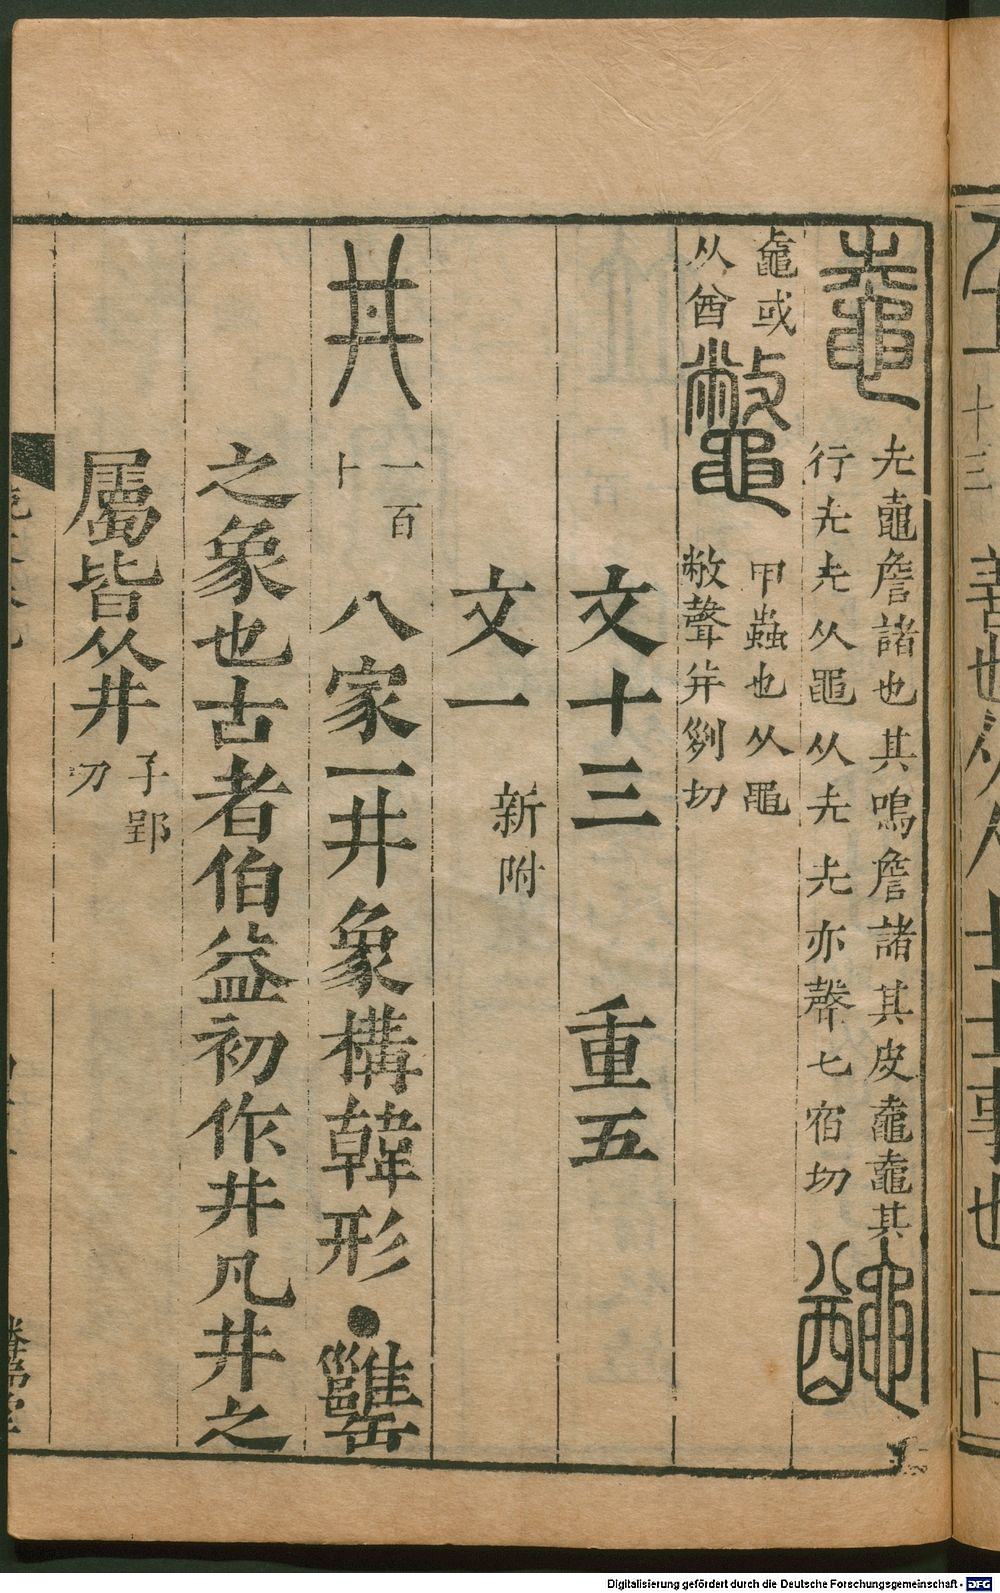 𪓰
圥鼀詹諸也其鳴詹諸其皮鼀鼀其
行圥圥从黽从圥圥亦聲七宿切
䵸
鼀或
从酋
鼈
甲蟲也从黽
敝聲并列切
文十三 重五
文一 新附
丼
一百
卜
八家一井象構韓形●䍍
之象也古者伯益初作井凡井之
屬皆从井 子郢
切
Digitalisierung gefördert durch die Deutsche Forschungsgemeinschaft - DFG